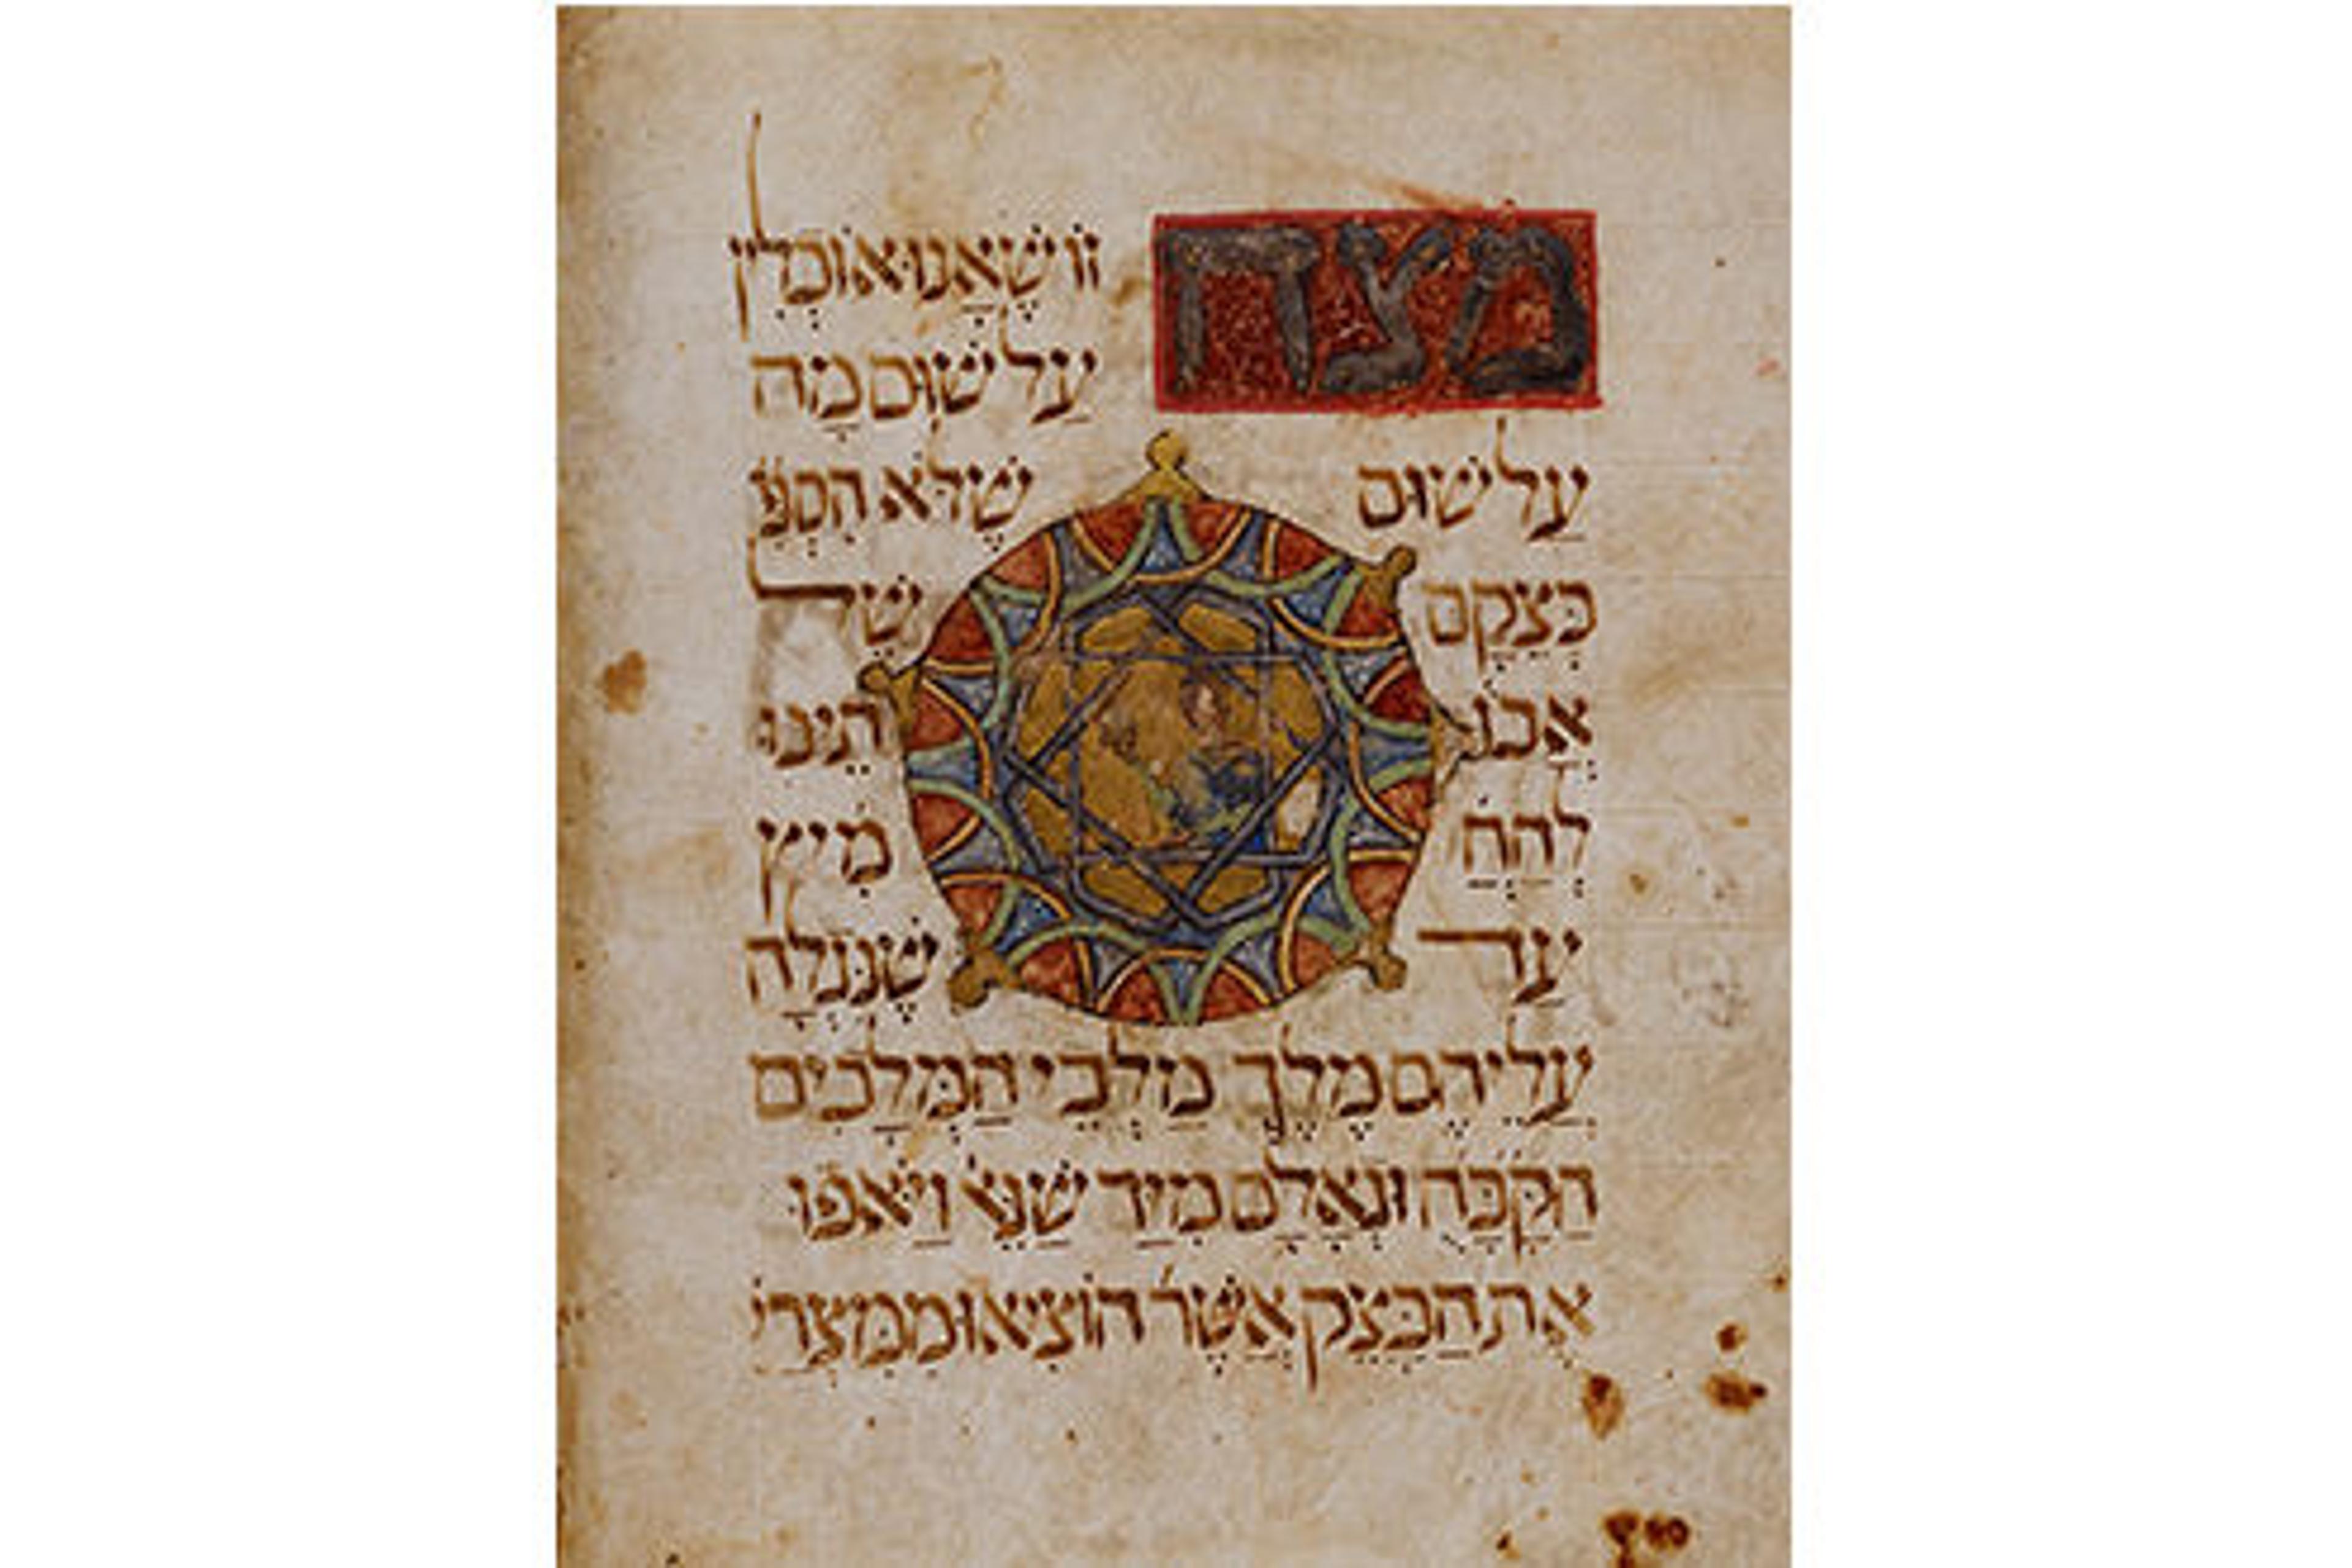 מצה זוֹ שֶׁאָנוּ אוֹכְלִין
עַל שׁוּם מָה
עַל שׁוּם שֶׁלֹּא הִסְפִּ
בְּצֵקָם שֶׁל
אֲבוֹ תֵינוּ
לְהַחֲ מִיץ
עַד שֶׁנִּגְלָה
עֲלֵיהֶם מֶלֶךְ מַלְכֵי הַמְּלָכִים
הַקָּבָּה וּגְאָלָם מִיַּד שֶׁנֶּ וַיֹּאפוּ
אֶת הַבָּצֵק אֲשֶׁר הוֹצִיאוּ מִמִּצְרַי